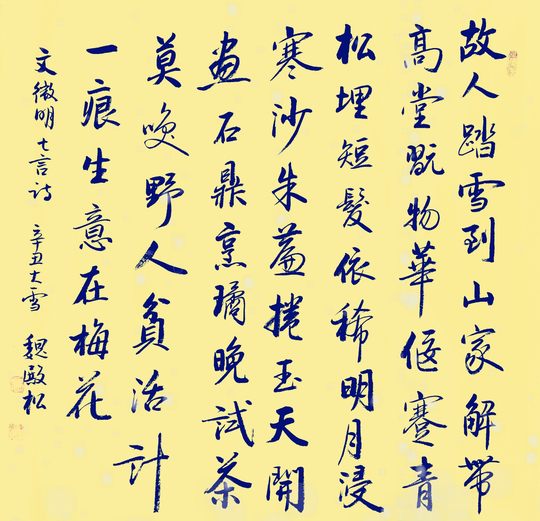 故人踏雪到山家解帶
高堂翫物華偃蹇青
松埋短髮依稀明月浸
寒沙朱蓋捲玉天開
畫石鼎烹璚晚試茶
莫唤野人貧活計
一痕生意在梅花
文徵明七言诗 辛丑大雪 魏殿松